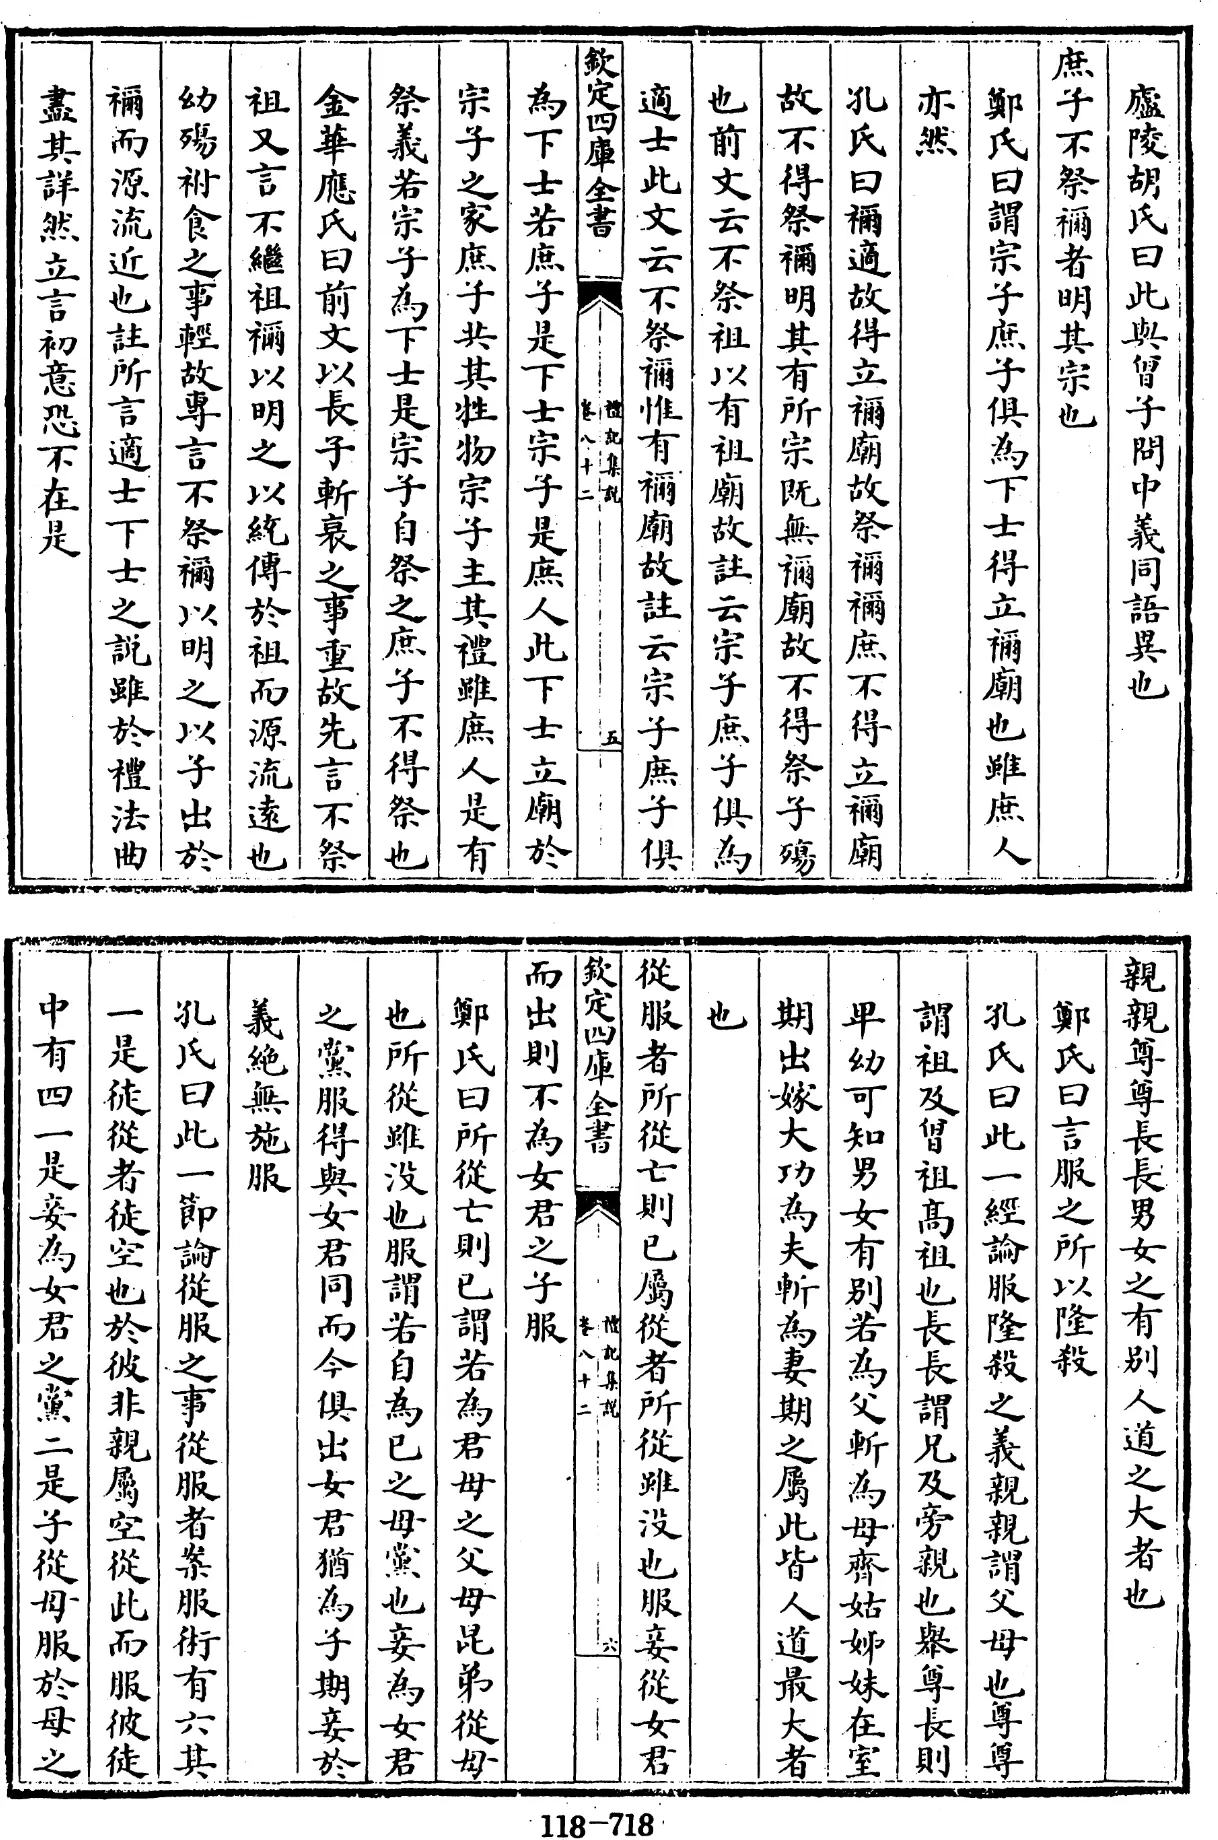 廬陵胡氏曰此與曾子問中義同語異也
庶子不祭禰者明其宗也
鄭氏曰謂宗子庶子俱為下士得立禰廟也雖庶人
亦然
孔氏曰禰適故得立禰廟故祭禰禰庶不得立禰廟
故不得祭禰明其有所宗既無禰廟故不得祭子殤
也前文云不祭祖以有祖廟故註云宗子庶子俱為
適士此文云不祭禰惟有禰廟故註云宗子庶子俱
欽定四庫全書
禮記集說
卷八十二
五
為下士若庶子是下士宗子是庶人此下士立廟於
宗子之家庶子共其牲物宗子主其禮雖庶人是有
祭義若宗子為下士是宗子自祭之庶子不得祭也
金華應氏曰前文以長子斬衰之事重故先言不祭
祖又言不繼祖禰以明之以統傳於祖而源流遠也
幼殤祔食之事輕故專言不祭禰以明之以子出於
禰而源流近也註所言適士下士之說雖於禮法曲
盡其詳然立言初意恐不在是
親親尊尊長長男女之有別人道之大者也
鄭氏曰言服之所以隆殺
孔氏曰此一經論服隆殺之義親親謂父母也尊尊
謂祖及曾祖高祖也長長謂兄及旁親也舉尊長則
卑幼可知男女有別若為父斬為母齊姑姊妹在室
期出嫁大功為夫斬為妻期之屬此皆人道最大者
也
從服者所從亡則已屬從者所從雖没也服妾從女君
欽定四庫全書
禮記集說
卷八十二
六
而出則不為女君之子服
鄭氏曰所從亡則已謂若為君母之父母昆弟從母
也所從雖没也服謂若自為已之母黨也妾為女君
之黨服得與女君同而今俱出女君猶為子期妾於
義絶無施服
孔氏曰此一節論從服之事從服者案服術有六其
一是徒從者徒空也於彼非親屬空從此而服彼徒
中有四一是妾為女君之黨二是子從母服於母之
118-718